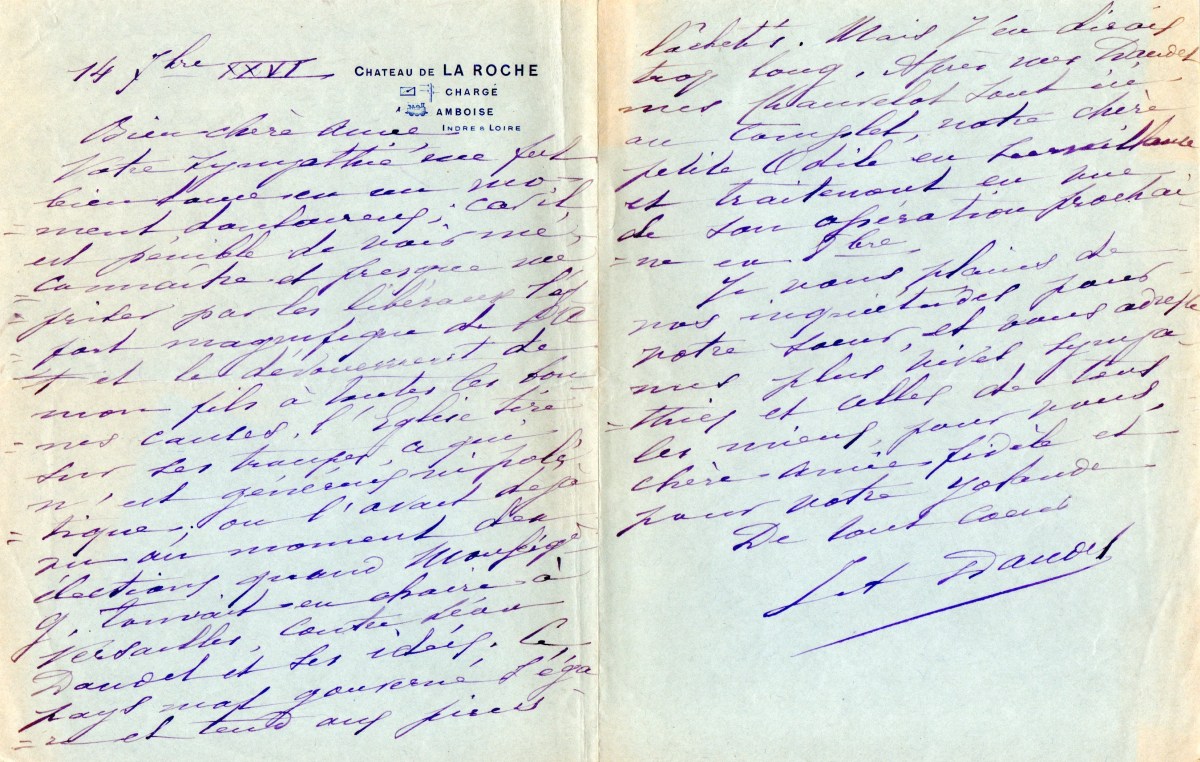 14 7bre XXVI
CHATEAU DE LA ROCHE
CHARGÉ
AMBOISE
INDRE & LOIRE
Bien chère Amie,
Votre sympathie me fut
bien douce en un mo-
=ment douloureux ; car il
est pénible de voir mé-
=connaître et presque mé
=priser par les libéraux l'ef
=fort magnifique de l'A
=F et le dévouement de
mon fils à toutes les bon-
=nes causes. l'Eglise tire
sur ses troupes, ce qui
n'est généreux ni poli-
=tique ; on l'avait déjà
vu au moment des
élections quand Monseigr
G. tonnait en chaire à
Versailles, contre Léon
Daudet et ses idées. Ce
pays mal gouverné s'éga
=re et tend aux pires
lâchetés. Mais j'en dirais
trop long. Après mes Daudet
mes Chauvelot sont ici
au complet, notre chère
petite Odile en surveillance
et traitement en vue
de son opération prochai-
=ne en 8bre
Je vous plains de
vos inquiétudes pour
votre soeur, et vous adresse
mes plus vives sympa-
=thies et celles de tous
les miens, pour vous,
chère Amie fidèle et
pour votre Yolande
De tout coeur
Daudet